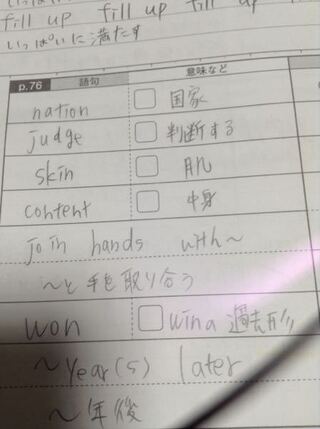 fill up fill up fill up
いっぱいに満たす
p.76 語句 意味など
nation 国家
judge 判断する
skin 肌
content 中身
join hands with〜
〜と手を取り合う
won winの過去形
〜year(s) later
〜年後